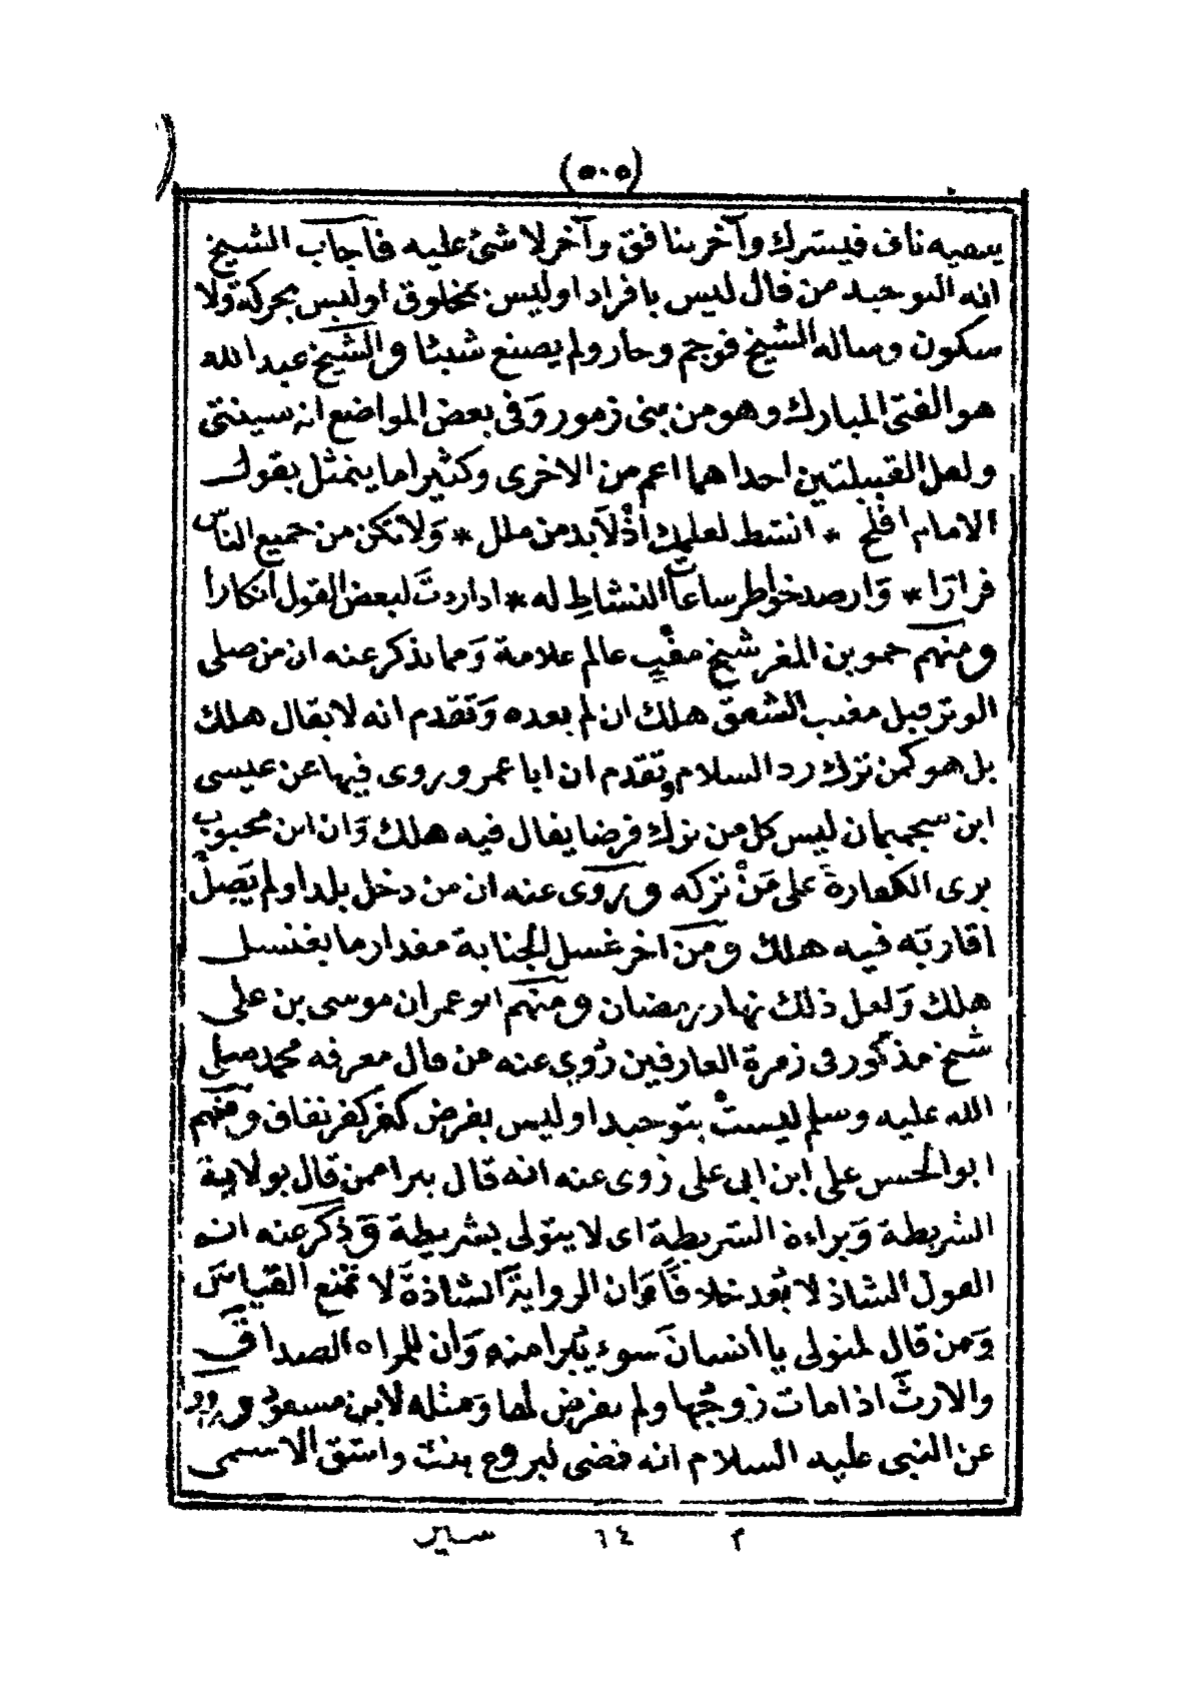 (٥٠٥)
ينصبه ناف فيشرك وآخر ينافق وآخر لا شئ عليه فأجاب الشيخ
انه التوحيد من قال ليس بافراد او ليس بمخلوق او ليس بحركة ولا
سكون وساله الشيخ فوجم وحار ولم يصنع شيئا والشيخ عبد الله
هو الفتى المبارك وهو من بنى زمور وَفى بعض المواضع انه سينتى
ولعل القبيلتين احداهما اعم من الاخرى وكثيرا ما يتمثل بقول
الامام افلح * انشط لعلمك اذْ لاَبد من ملل * وَلا تكن من جميع الناس
فرارًا * وَارصد خواطر ساعات النشاطِ له * اذا ردتَ لبعض القول انكارا
ومنهم حمو بن المغر شيخ مفتٍ عالم علامة وَمما يذكر عنه ان من صلى
الوتر قبل مغيب الشفق هلك ان لم يعده وَتقدم انه لا يقال هلك
بل هو كمن ترك رد السلام وتقدم ان ابا عمر وروى فيها عن عيسى
ابن سجميمان ليس كل من ترك فرضا يقال فيه هلك وَان ابن محبوب
يرى الكفارةَ على مَنْ تركه وروى عنه ان من دخل بلدا ولم يَصِلْ
اقاربَه فيه هلك ومن اخر غسل الجنابة مقدار ما يغتسل
هلك وَلعل ذلك نهار رمضان ومنهم ابو عمران موسى بن على
شيخ مذكور فى زمرة العارفين رُوى عنه من قال معرفه محمد صلى
الله عليه وسلم ليستْ بتوحيد او ليس بفرض كفر كفر نفاق ومنهم
ابو الحسن على ابن ابى على رُوى عنه انه قال يبرا ممن قال بولاية
الشريطة وَبراءة الشريطة اى لا يتولى بشريطة وَذكر عنه انه
القول الشاذ لا يُعد خلافًا وَان الروايةَ الشاذةَ لا تمنع القياسَ
وَمن قال لمتولى يا أنسانَ سوء يُبرا منه وَان للمراه الصداق
والارثَ اذا مات زوجُها ولم يفرض لها وَمثله لابن مسعودٍ وروى
عن النبى عليه السلام انه قضى لبروع بنت واشق الاسمى
٢ ٦٤ سير